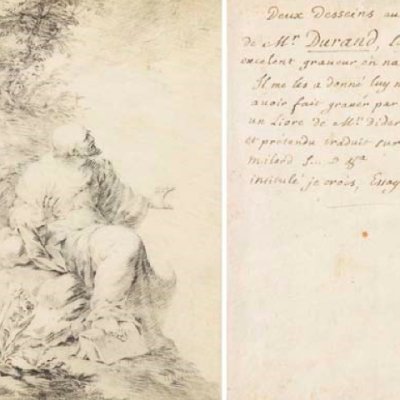 Deux desseins au
de Mr Durand, 
excelent graveur en na
Il me les a donné luy m
avoir fait graver par
un Livre de Mr Dider
et prétendu traduit sur
milord S...
intitulé je crois, Essay